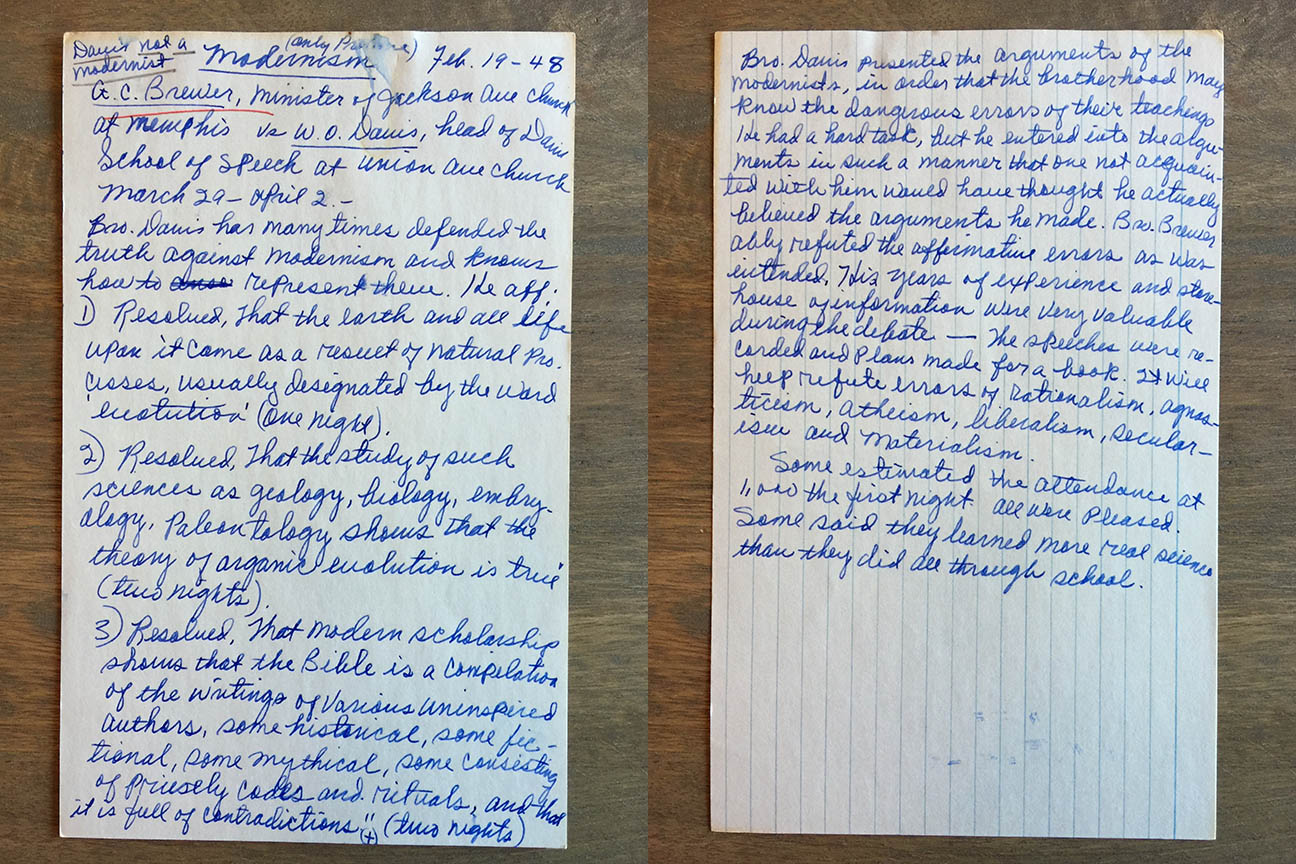 Davis not a
modernist
Modernism (only Pretense) Feb. 19-48
G. C. Brewer, minister of Jackson Ave church
at Memphis vs W. O. Davis, head of Davis
School of Speech at Union Ave church
March 29 - April 2. -
Bro. Davis has many times defended the
truth against modernism and knows
how to represent them. He aff:
1) Resolved, That the earth and all life
upon it came as a result of natural Pro-
cisses, usually designated by the word
'evolution' (one night).
2) Resolved, That the study of such
sciences as geology, biology, embry-
ology, Paleontology shows that the
theory of organic evolution is true
(two nights).
3) Resolved, That modern scholarship
shows that the Bible is a compilation
of the writings of various uninspired
authors, some historical, some fic-
tional, some mythical, some consisting
of priestly codes and rituals, and that
it is full of contradictions." (+) (two nights)
Bro. Davis presented the arguments of the
modernists, in order that the brotherhood may
know the dangerous errors of their teachings
He had a hard task, but he entered into the argu-
ments in such a manner that one not acquain-
ted with him would have thought he actually
believed the arguments he made. Bro. Brewer
ably refuted the affirmative errors as was
intended. His years of experience and store-
house of information were very valuable
during the debate — The speeches were re-
corded and Plans made for a book. It will
help refute errors of rationalism, agnos-
ticism, atheism, liberalism, secular-
ism and materialism.
Some estimated the attendance at
1,000 the first night. All were Pleased.
Some said they learned more real science
than they did all through school.